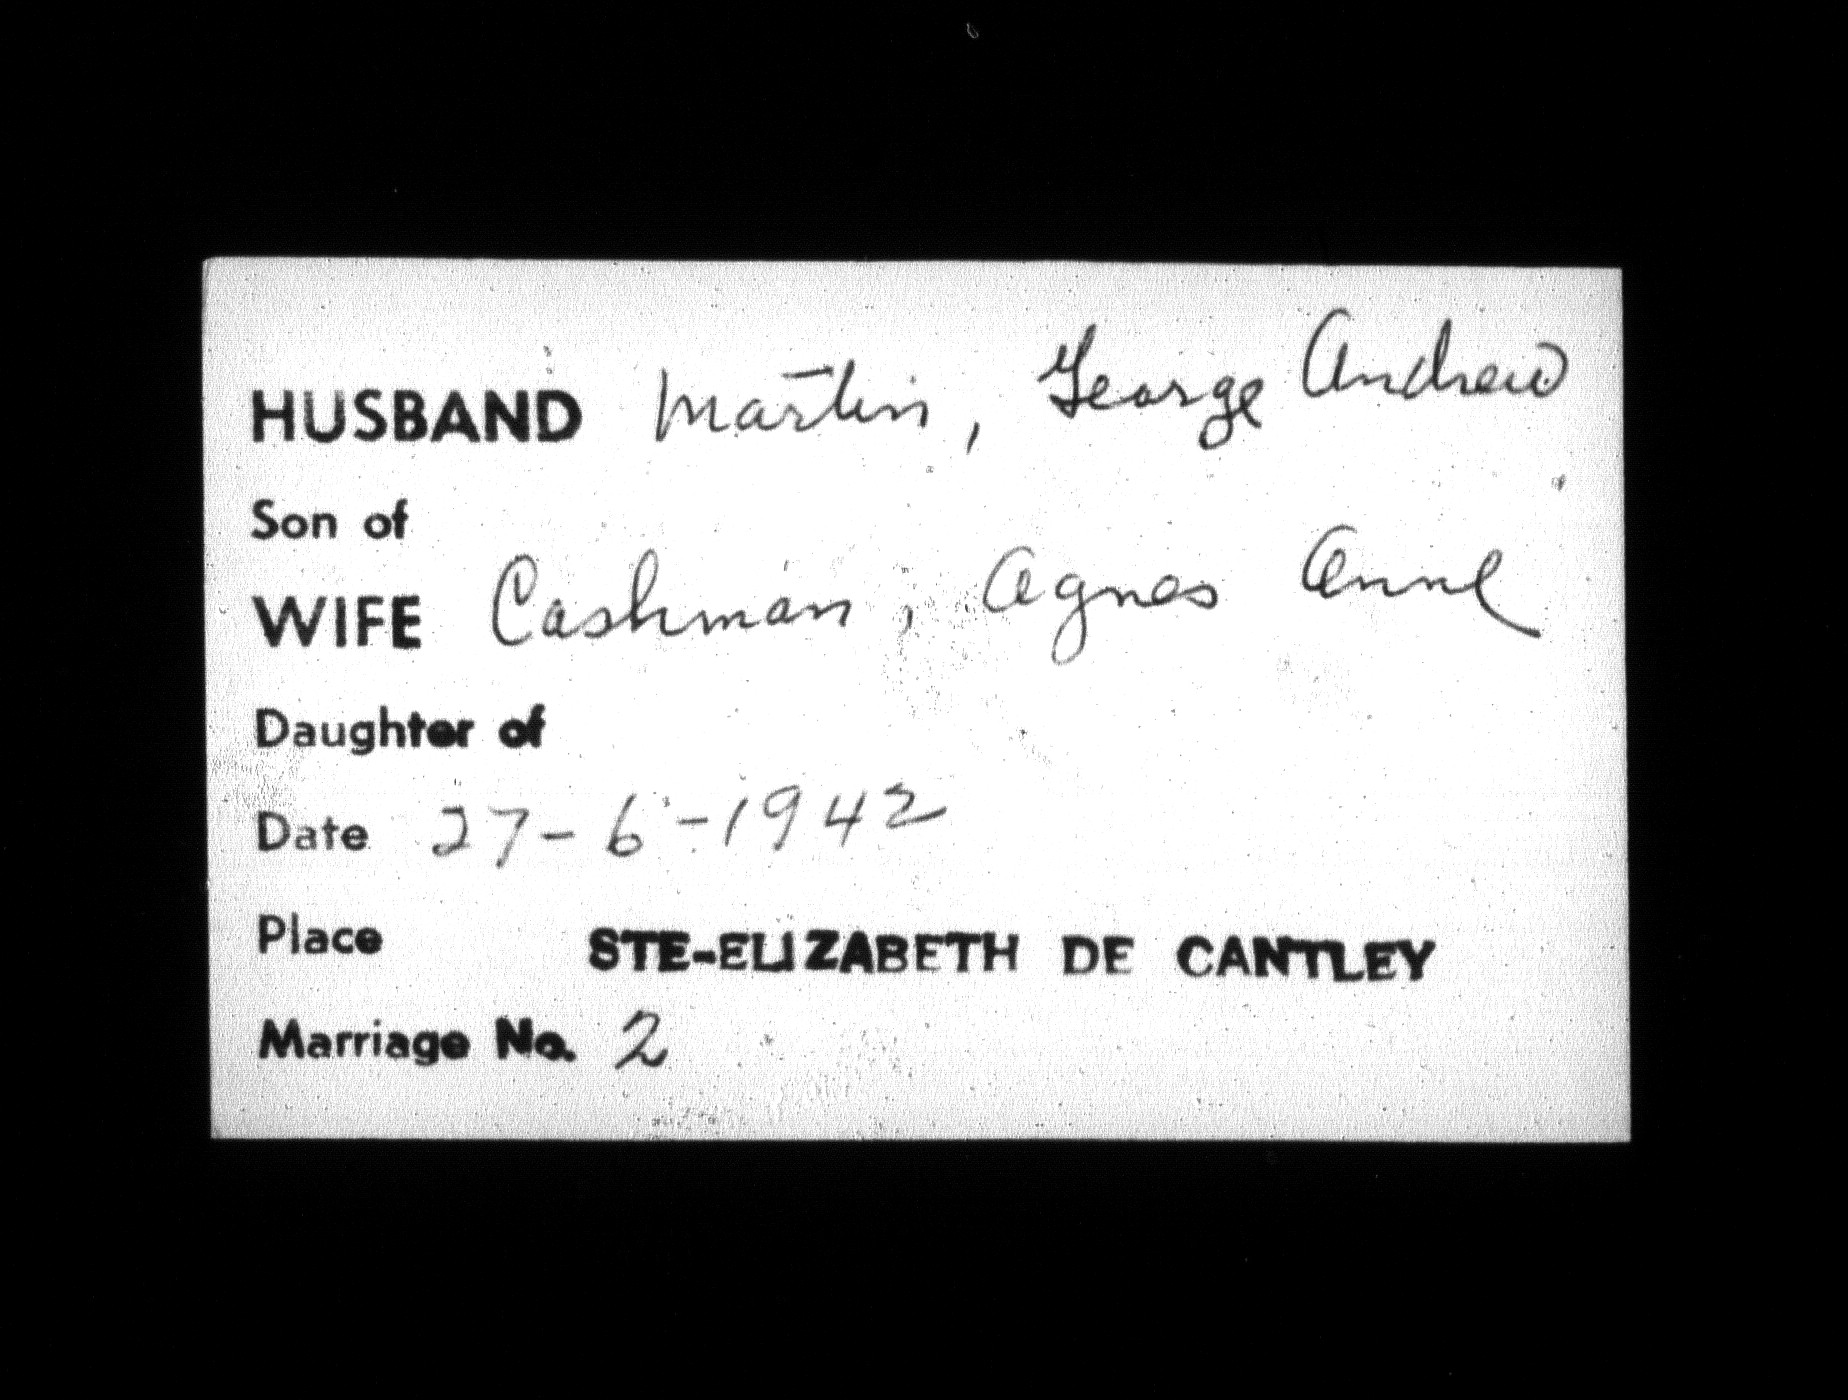 HUSBAND Martin, George Andrew
Son of
WIFE Cashman, Agnes Anne
Daughter of
Date 27-6-1942
Place STE-ELIZABETH DE CANTLEY
Marriage No. 2